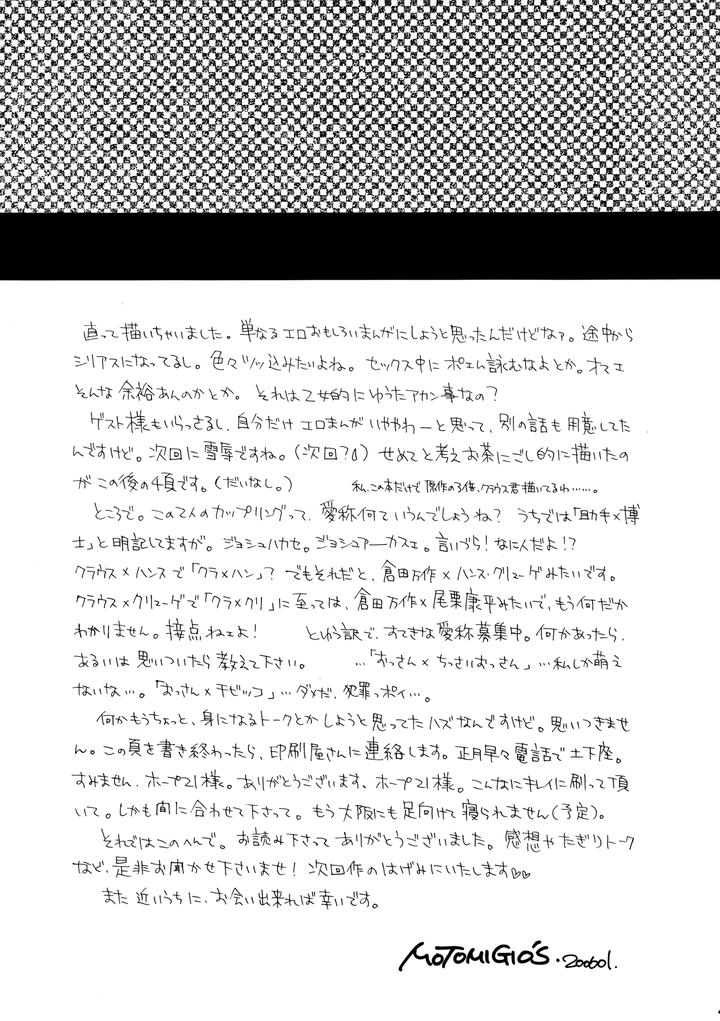 直って描いちゃいました。単なるエロおもしろいまんがにしようと思ったんだけどなァ。途中から
シリアスになってるし。色々ツッ込みたいよね。セックス中にポエム詠むなよとか。オマエ
そんな余裕あんのかとか。それは乙女的にゆうたアカン事なの?
ゲスト様もいらっさるし、自分だけエロまんがいややわーと思って、別の話も用意してた
んですけど。次回に雪辱ですね。(次回?)せめてと考えお茶にごし的に描いたの
がこの後の4頁です。(だいなし。)
私、この本だけで原作の3倍、クラウス君描いてるわ……。
ところで。この2人のカップリングって、愛称何ていうんでしょうね?うちでは「助手×博
士」と明記してますが。ジョシュハカセ。ジョシュアーカスェ。言いづら!なに人だよ!?
クラウス×ハンスで「クラ×ハン」?でもそれだと、倉田万作×ハンス・グリューゲみたいです。
クラウス×クリューゲで「クラ×クリ」に至っては、倉田万作×尾栗康平みたいで、もう何だか
わかりません。接点ねェよ!という訳で、すてきな愛称募集中。何かあったら、
あるいは思いついたら教えて下さい。…「おっさん×ちっさいおっさん」…私しか萌え
ないな…。「おっさん×チビッコ」…ダメだ、犯罪っポイ…。
何かもうちょっと、身になるトークとかしようと思ってたハズなんですけど。思いつきませ
ん。この頁を書き終わったら、印刷屋さんに連絡します。正月早々電話で土下座。
すみません、ホープ21様。ありがとうございます、ホープ21様。こんなにキレイに刷って頂
いて。しかも間に合わせて下さって。もう大阪にも足向けて寝られません(予定)。
それではこのへんで。お読み下さってありがとうございました。感想やたぎりトーク
など、是非お聞かせ下さいませ!次回作のはげみにいたします♡♡
また近いうちに、お会い出来れば幸いです。
MOTOMIGIO'S・200601.